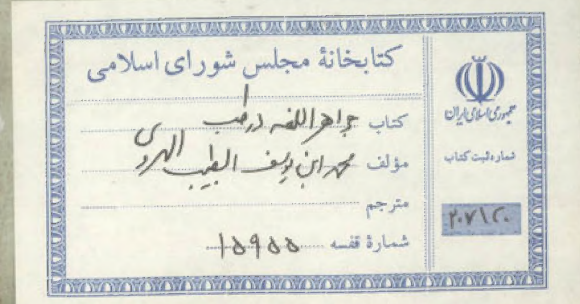 کتابخانهٔ مجلس شورای اسلامی
کتاب جواهر اللغه در طب
مؤلف محمد ابن یوسف الطبیب الهروی
مترجم
شمارهٔ قفسه ۱۵۹۵۵
جمهوری اسلامی ایران
شماره ثبت کتاب
۲۰۷۱۲۰